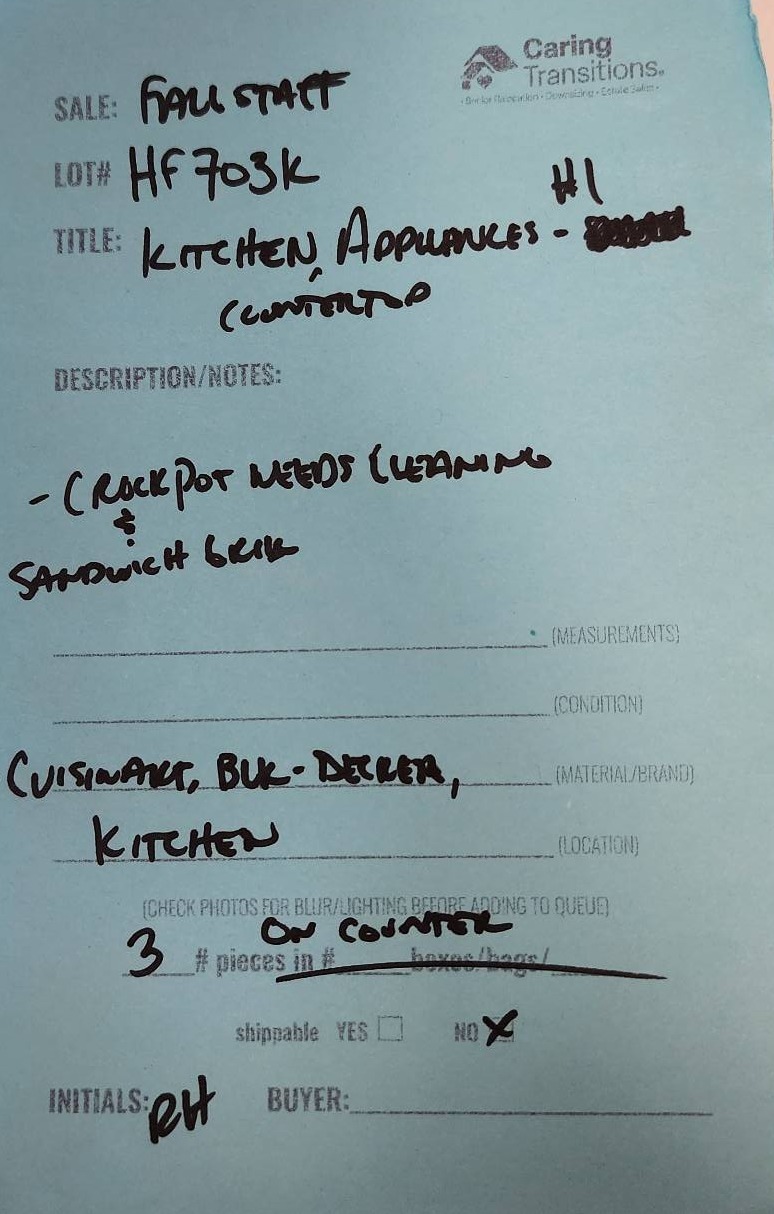 Caring
Transitions.
• Senior Relocation • Downsizing • Estate Sales •
SALE: FALLSTAFF
LOT# HF703K
#1
TITLE: KITCHEN, APPLIANCES -
COUNTERTOP
DESCRIPTION/NOTES:
- CROCKPOT NEEDS CLEANING
&
SANDWICH
(MEASUREMENTS)
(CONDITION)
CUISINART, BLK-DECKER, (MATERIAL/BRAND)
KITCHEN (LOCATION)
(CHECK PHOTOS FOR BLUR/LIGHTING BEFORE ADDING TO QUEUE)
ON COUNTER
3 # pieces in # boxes/bags/
shippable YES NO X
INITIALS: RH BUYER: